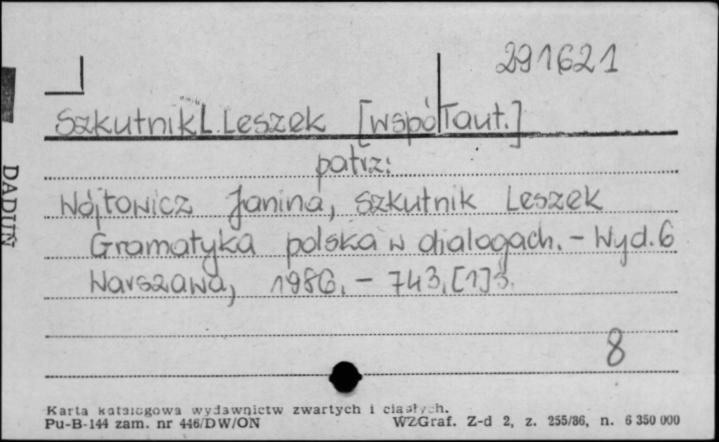 291621
Szkutnik L. Leszek [współaut.]
patrz:
Wójtowicz Janina, Szkutnik Leszek
Gramatyka polska w dialogach. - Wyd. 6
Warszawa, 1986. - 743, [1] s.
8
DADUŃ
Karta katalogowa wydawnictw zwartych i ciągłych.
Pu-B-144 zam. nr 446/DW/ON
WZGraf. Z-d 2, z. 255/86, n. 6 350 000